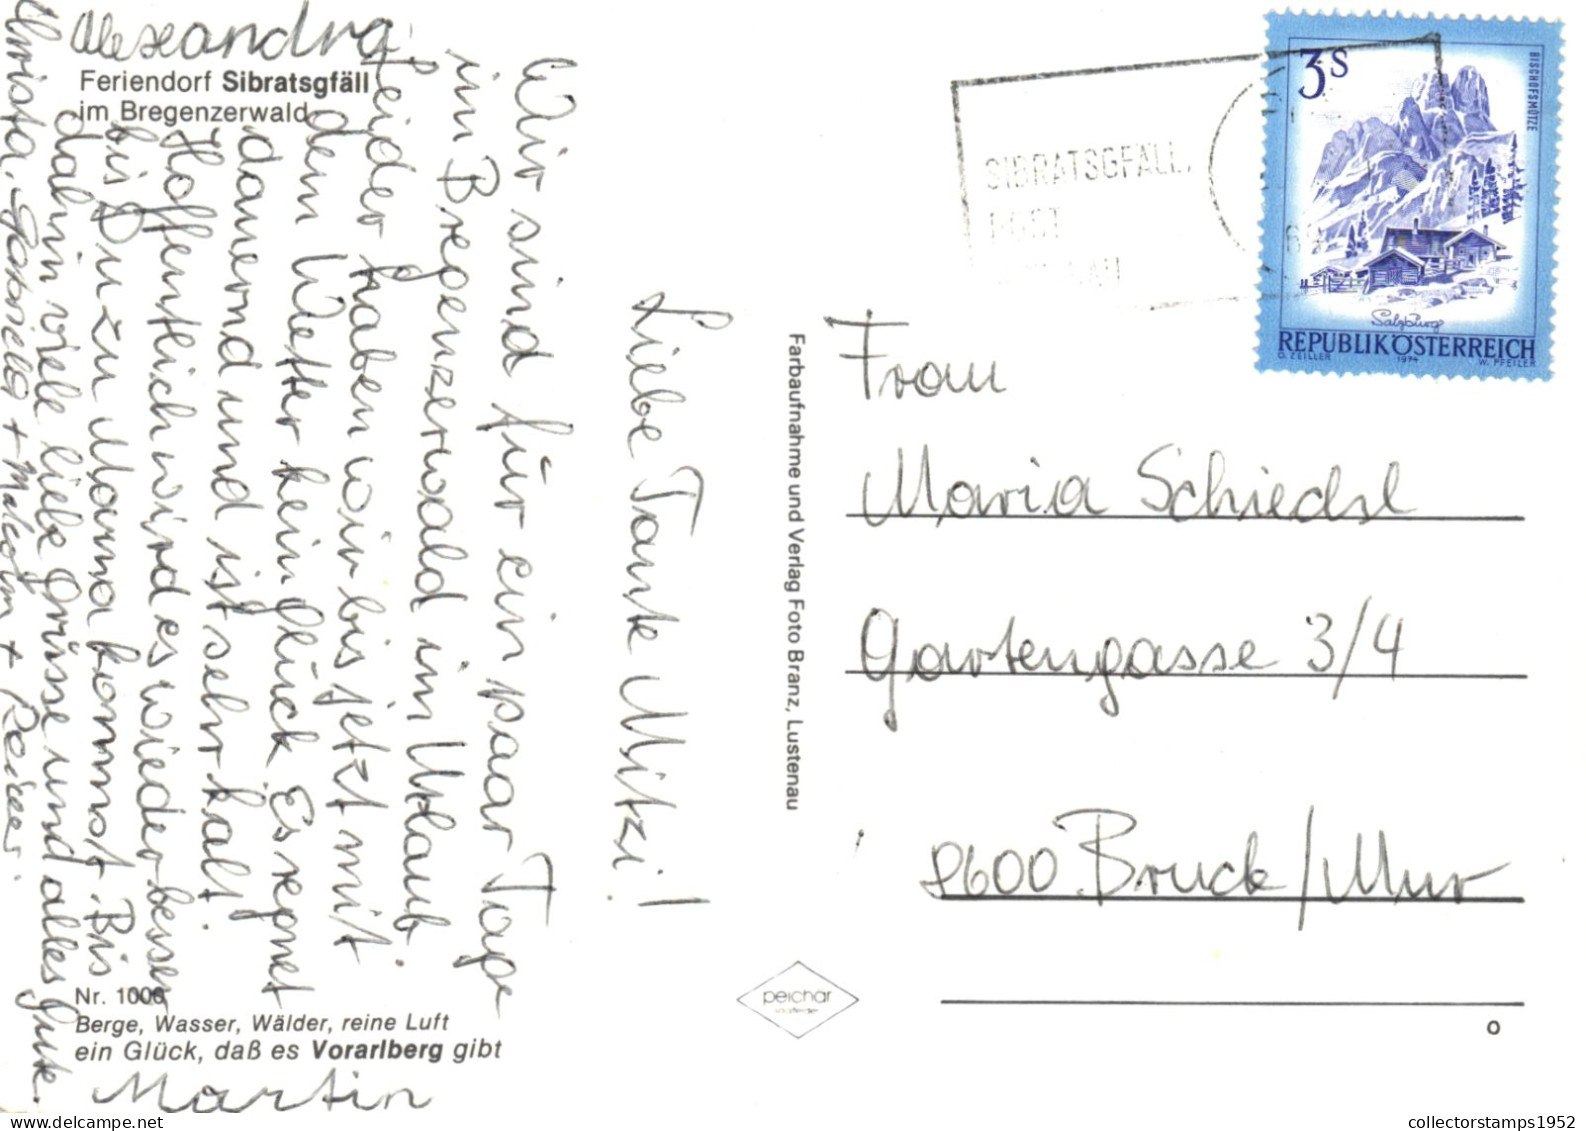 Alexandra
Feriendorf Sibratsgfäll
im Bregenzerwald
Liebe Tante Mitzi!
Wir sind für ein paar Tage
im Bregenzerwald im Urlaub.
Leider haben wir bis jetzt mit
dem Wetter kein Glück. Es regnet
dauernd und ist sehr kalt.
Hoffentlich wird es wieder besser
bis Du zu Mama kommst. Bis
dahin viele liebe Grüsse und alles Gute.
Christa, Gabriela + Malcolm + Reiner.
Martin
Nr. 1006
Berge, Wasser, Wälder, reine Luft
ein Glück, daß es Vorarlberg gibt
Farbaufnahme und Verlag Foto Branz, Lustenau
peichar
SIBRATSGFÄLL,
POST
3S
BISCHOFSMÜTZE
Salzburg
REPUBLIK ÖSTERREICH
O. ZEILLER 1974 W. PFEILER
Frau
Maria Schiedsl
Gartengasse 3/4
8600 Bruck/Mur
o
collectorstamps1952